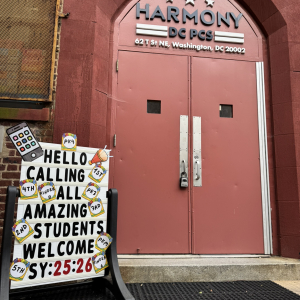 HARMONY
DC PCS
62 T St NE, Washington, DC 20002
PK4
HELLO
CALLING
1ST
4TH
ALL
PK3
AMAZING
3RD
2ND
STUDENTS
WELCOME
5TH
SY:25:26